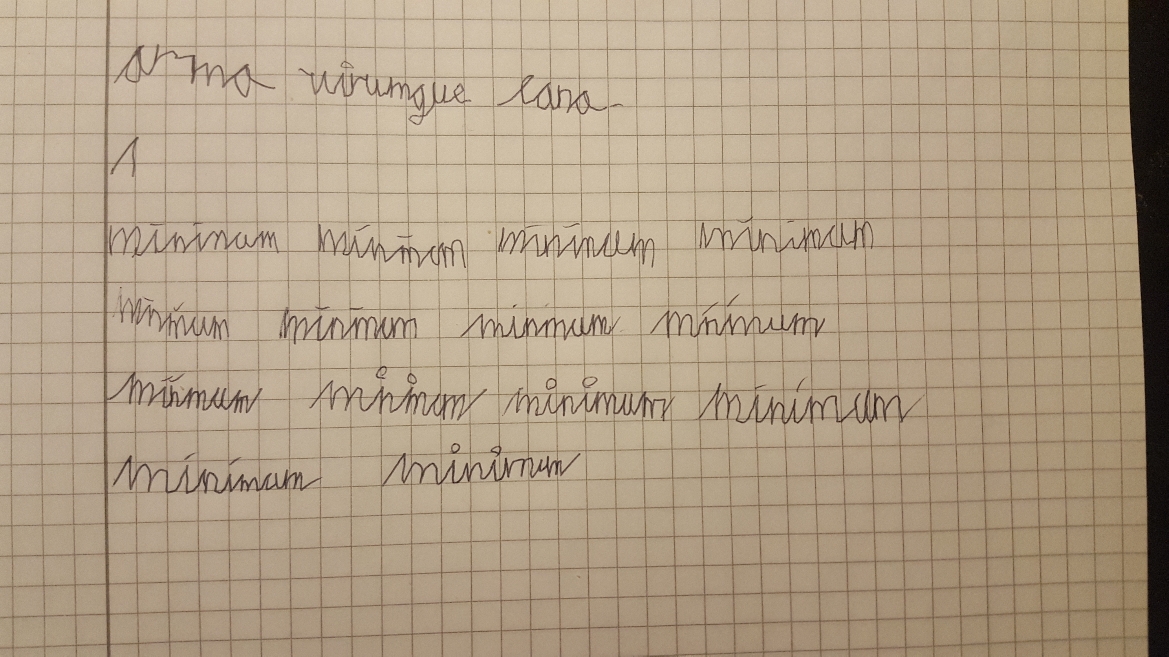 arma virumque cano
1
minimum minimum minimum minimum
minimum minimum minimum minimum
minimum minimum minimum minimum
minimum minimum